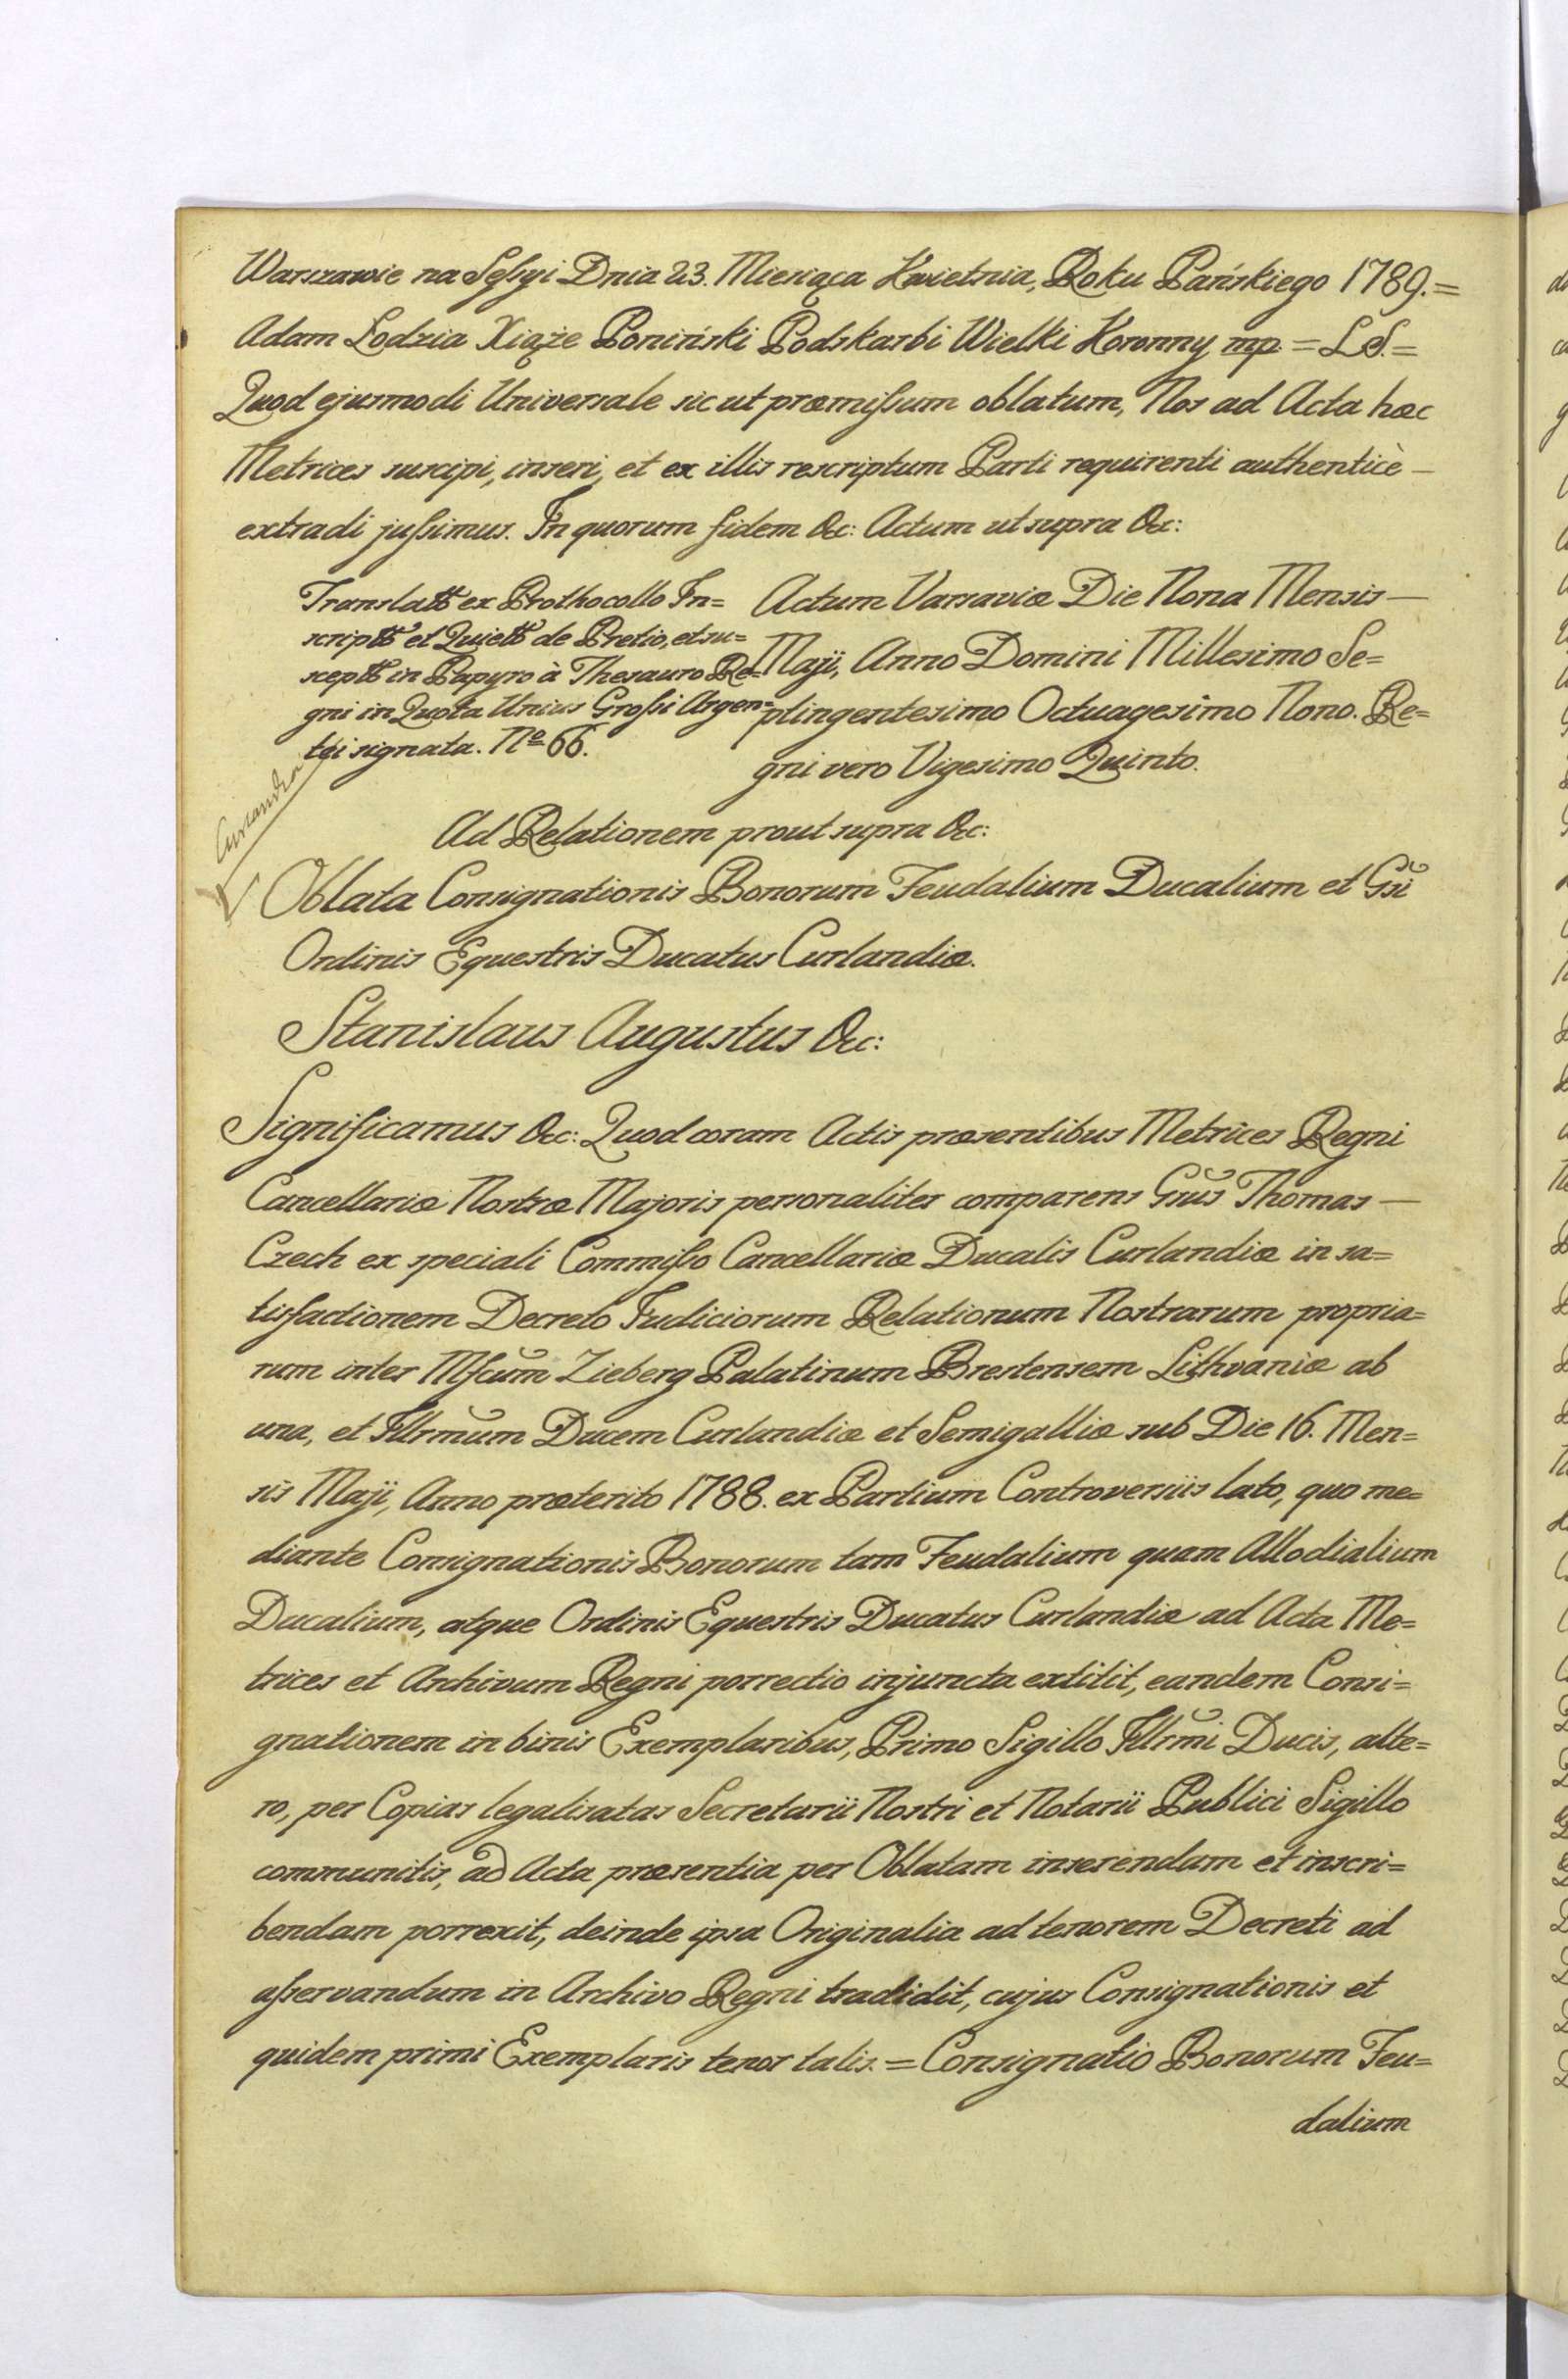 Warszawie na Sęſsyi Dnia 23. Miesiąca Kwietnia, Roku Pańskiego 1789.=
Adam Lodzia Xiąże Poniński Podskarbi Wielki Koronny mp. = LS. =
Quod ejusmodi Universale sicut præmiſsum oblatum, Nos ad Acta hæc
Metrices suscipi, inseri, et ex illis rescriptum Parti requirenti authenticè —
extradi juſsimus. In quorum fidem &c: Actum ut supra &c:
Translatt ex Prothocollo In=
scriptt et Quiett de Pretio, et su=
sceptt in Papyro à Thesauro Re=
gni in Quota Unius Groſsi Argen=
tei signata. No 66.
Actum Varsaviæ Die Nona Mensis —
Maji, Anno Domini Millesimo Se=
ptingentesimo Octuagesimo Nono. Re=
gni vero Vigesimo Quinto.
Ad Relationem prout supra &c:
Curlandia
Oblata Consignationis Bonorum Feudalium Ducalium et Gsi
Ordinis Equestris Ducatus Curlandiæ.
Stanislaus Augustus &c:
Significamus &c: Quod coram Actis præsentibus Metrices Regni
Cancellariæ Nostræ Majoris personaliter comparens Gsus Thomas —
Czech ex speciali Commiſso Cancellariæ Ducalis Curlandiæ in sa=
tisfactionem Decreto Judiciorum Relationum Nostrarum propria=
rum inter Mfcum Zieberg Palatinum Brestensem Lithvaniæ ab
una, et Illrmum Ducem Curlandiæ et Semigalliæ sub Die 16. Men=
sis Maji, Anno præterito 1788. ex Partium Controversiis lato, quo me=
diante Consignationis Bonorum tam Feudalium quam Allodialium
Ducalium, atque Ordinis Equestris Ducatus Curlandiæ ad Acta Me=
trices et Archivum Regni porrectio injuncta extitit, eandem Consi=
gnationem in binis Exemplaribus, Primo Sigillo Illrmi Ducis, alte=
ro, per Copias legalisatas Secretarii Nostri et Notarii Publici Sigillo
communitis, ad Acta præsentia per Oblatam inserendam et inscri=
bendam porrexit, deinde ipsa Originalia ad tenorem Decreti ad
aſservandum in Archivo Regni tradidit, cujus Consignationis et
quidem primi Exemplaris tenor talis. = Consignatio Bonorum Feu=
dalium